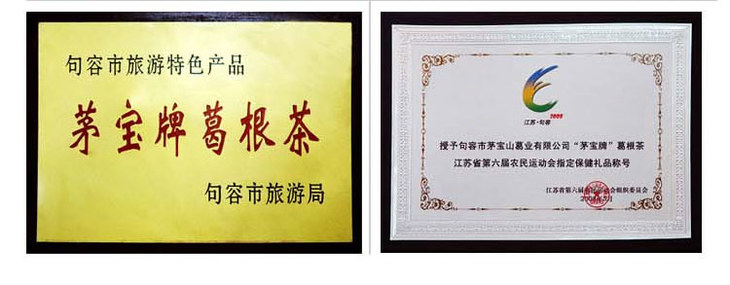 句容市旅游特色产品
茅宝牌葛根茶
句容市旅游局
江苏·句容
授予句容市茅宝山葛业有限公司“茅宝牌”葛根茶
江苏省第六届农民运动会指定保健礼品称号
江苏省第六届
会组织委员会